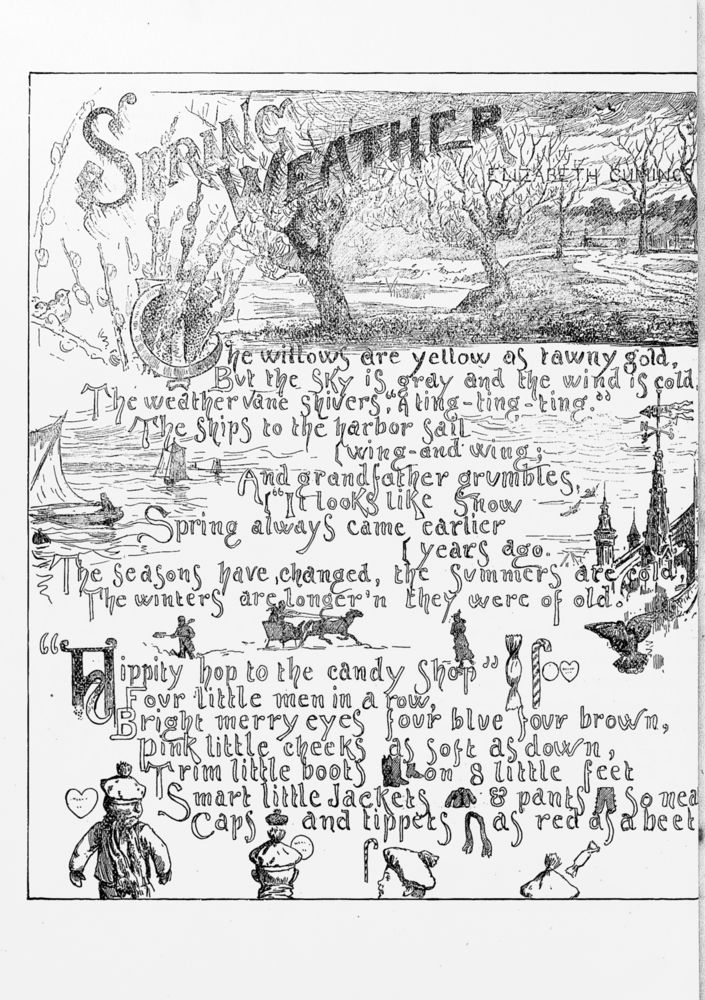 SPRING
WEATHER
ELIZABETH CUMINGS
The willows are yellow as tawny gold,
But the sky is gray and the wind is cold,
The weather vane shivers, "A ting-ting-ting."
The ships to the harbor sail
wing-and wing;
And grandfather grumbles,
"It looks like snow
Spring always came earlier
years ago.
The seasons have changed, the summers are cold,
The winters are longer'n they were of old."
"Hippity hop to the candy shop"
Four little men in a row,
Bright merry eyes four blue four brown,
Pink little cheeks as soft as down,
Trim little boots on 8 little feet
Smart little Jackets & pants so nea
Caps and tippets as red as a beet